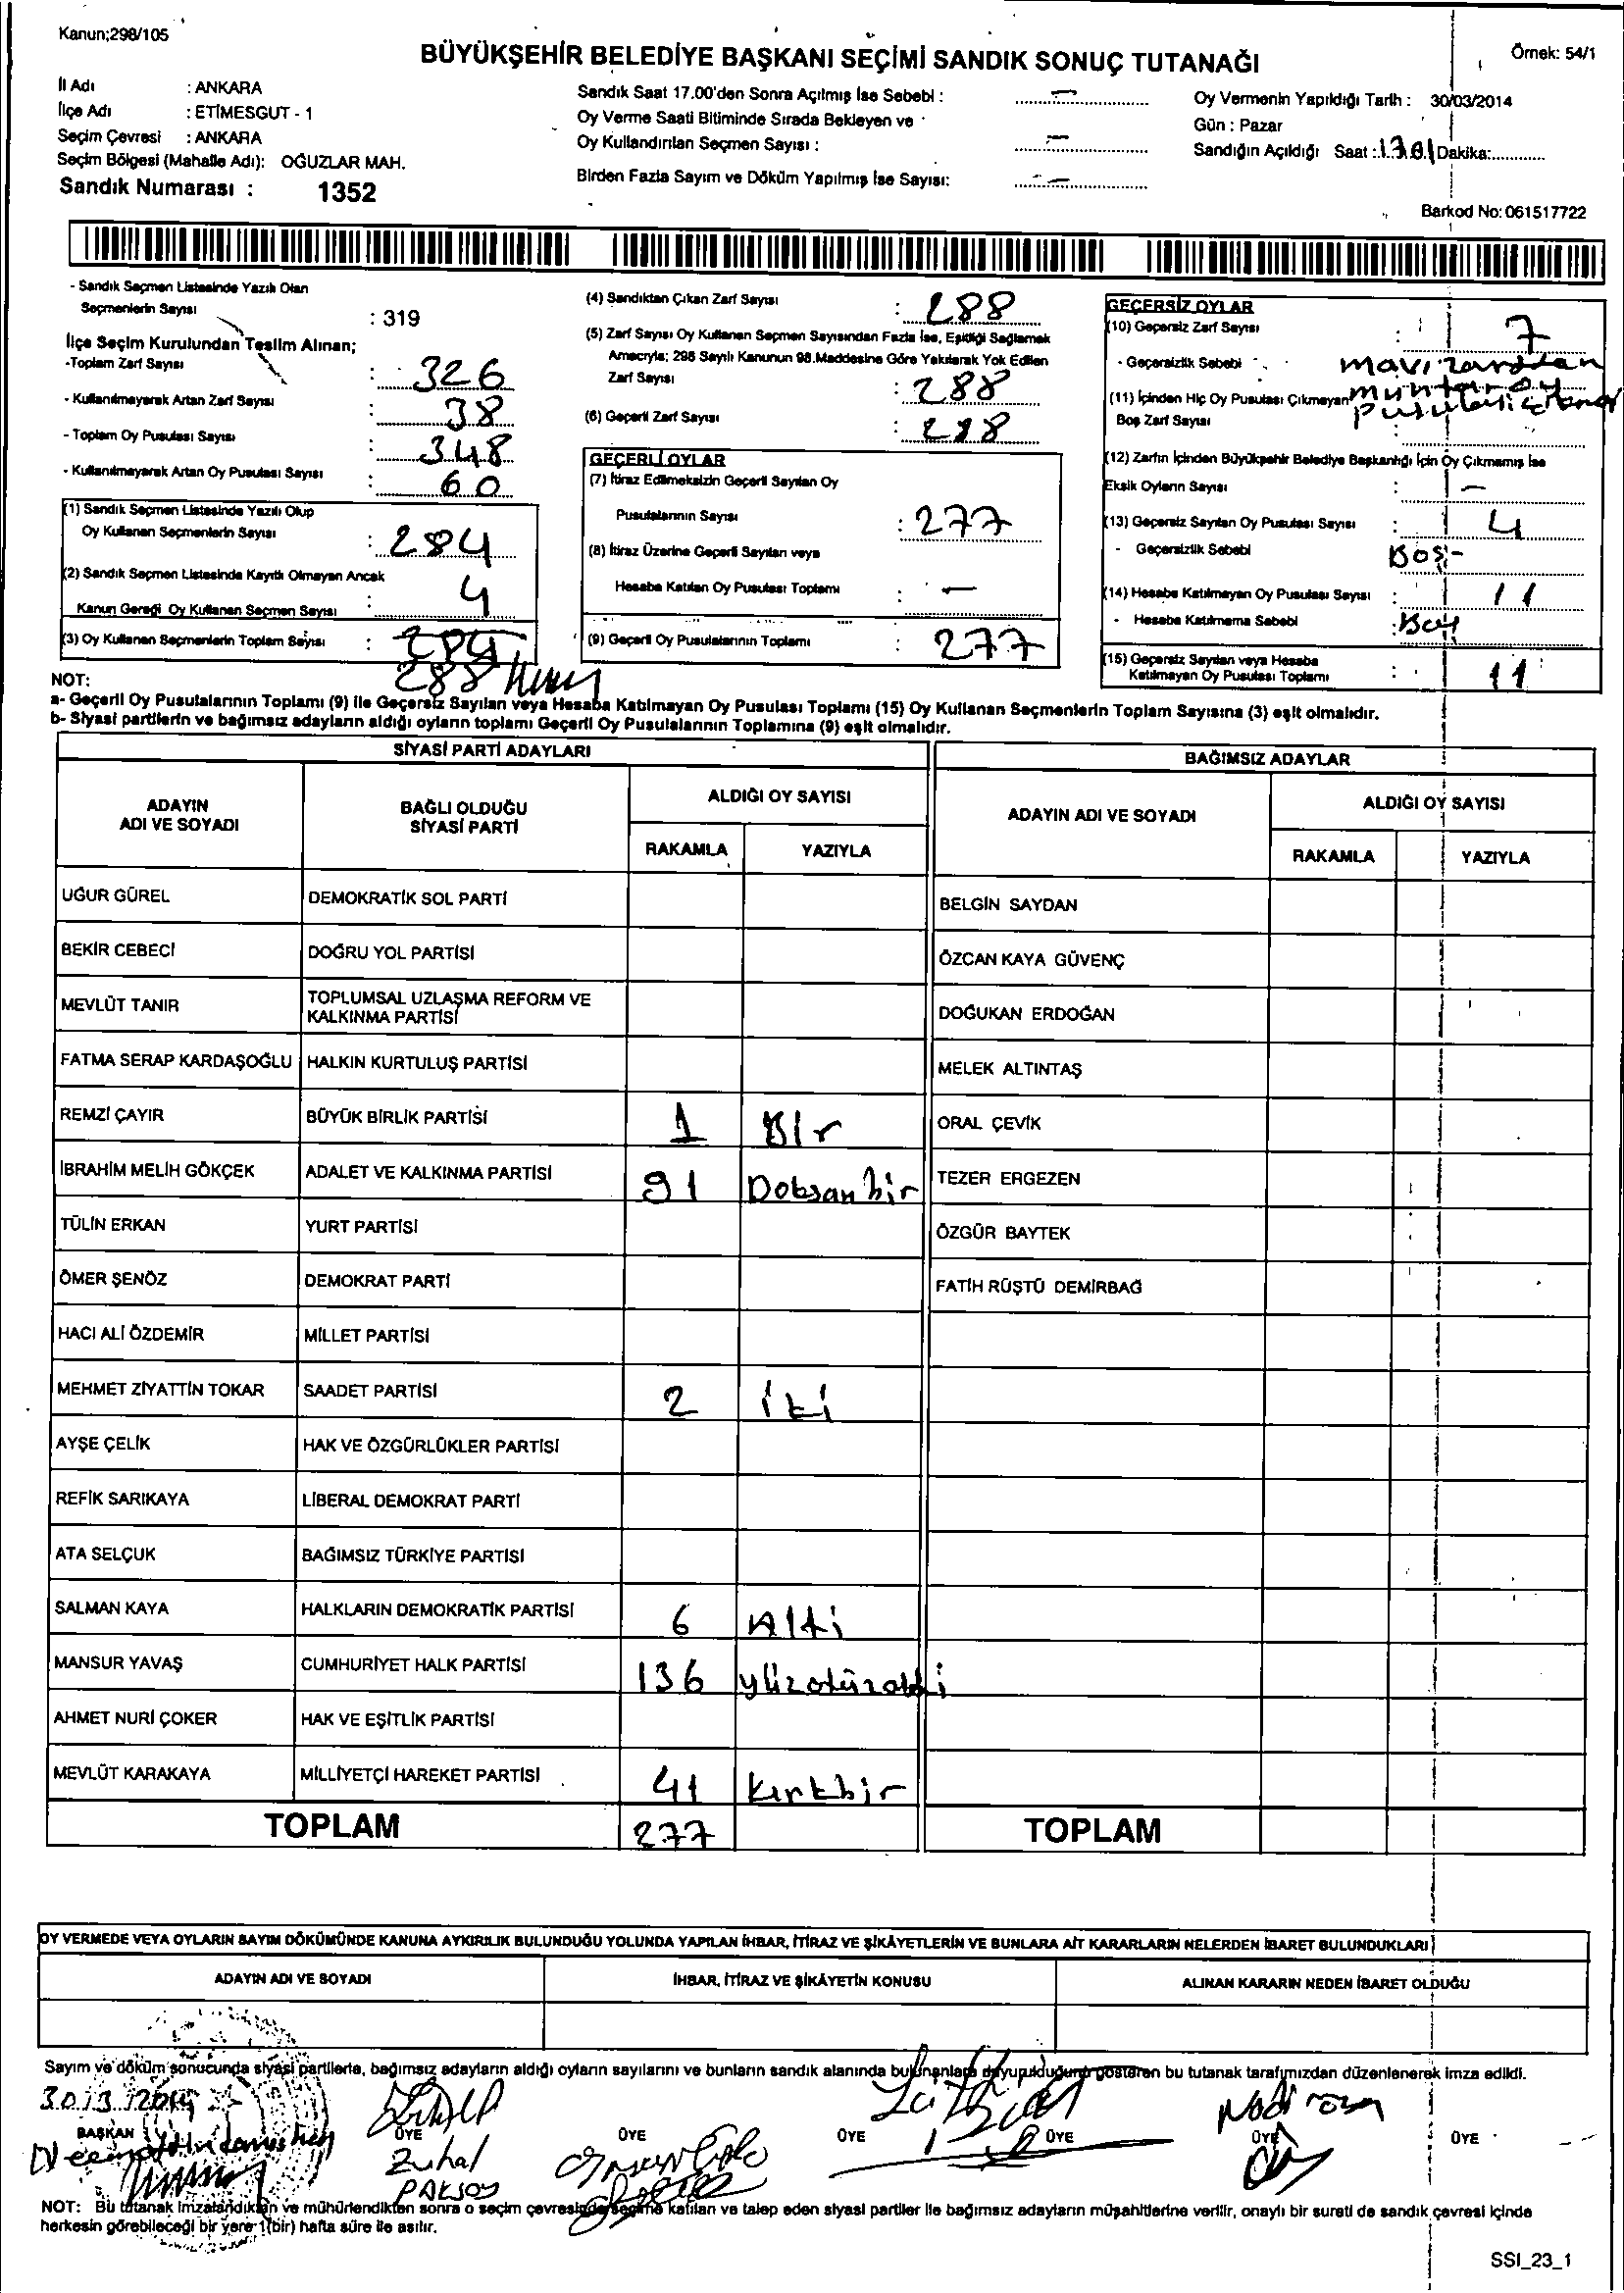 Kanun;298/105
BÜYÜKŞEHİR BELEDİYE BAŞKANI SEÇİMİ SANDIK SONUÇ TUTANAĞI
Örnek: 54/1
İl Adı : ANKARA
İlçe Adı : ETİMESGUT - 1
Seçim Çevresi : ANKARA
Seçim Bölgesi (Mahalle Adı): OĞUZLAR MAH.
Sandık Numarası : 1352
Sandık Saat 17.00'den Sonra Açılmış İse Sebebi : —
Oy Verme Saati Bitiminde Sırada Bekleyen ve
Oy Kullandırılan Seçmen Sayısı : —
Birden Fazla Sayım ve Döküm Yapılmış İse Sayısı: —
Oy Vermenin Yapıldığı Tarih : 30/03/2014
Gün : Pazar
Sandığın Açıldığı Saat : Dakika:
Barkod No: 061517722
- Sandık Seçmen Listesinde Yazılı Olan
Seçmenlerin Sayısı : 319
İlçe Seçim Kurulundan Teslim Alınan;
-Toplam Zarf Sayısı : 326
- Kullanılmayarak Artan Zarf Sayısı : 38
- Toplam Oy Pusulası Sayısı : 348
- Kullanılmayarak Artan Oy Pusulası Sayısı : 60
(1) Sandık Seçmen Listesinde Yazılı Olup
Oy Kullanan Seçmenlerin Sayısı : 284
(2) Sandık Seçmen Listesinde Kayıtlı Olmayan Ancak
Kanun Gereği Oy Kullanan Seçmen Sayısı : 4
(3) Oy Kullanan Seçmenlerin Toplam Sayısı : 284
288
(4) Sandıktan Çıkan Zarf Sayısı : 288
(5) Zarf Sayısı Oy Kullanan Seçmen Sayısından Fazla İse, Eşitliği Sağlamak
Amacıyla; 298 Sayılı Kanunun 98.Maddesine Göre Yakılarak Yok Edilen
Zarf Sayısı : 288
(6) Geçerli Zarf Sayısı : 288
GEÇERLİ OYLAR
(7) İtiraz Edilmeksizin Geçerli Sayılan Oy
Pusulalarının Sayısı : 277
(8) İtiraz Üzerine Geçerli Sayılan veya
Hesaba Katılan Oy Pusulası Toplamı : —
(9) Geçerli Oy Pusulalarının Toplamı : 277
GEÇERSİZ OYLAR
(10) Geçersiz Zarf Sayısı : 7
- Geçersizlik Sebebi mavi zarftan
muhtar oy
(11) İçinden Hiç Oy Pusulası Çıkmayan
Boş Zarf Sayısı :
(12) Zarfın İçinden Büyükşehir Belediye Başkanlığı İçin Oy Çıkmamış İse
Eksik Oyların Sayısı : —
(13) Geçersiz Sayılan Oy Pusulası Sayısı : 4
- Geçersizlik Sebebi Boş -
(14) Hesaba Katılmayan Oy Pusulası Sayısı : 11
- Hesaba Katılmama Sebebi : Boş
(15) Geçersiz Sayılan veya Hesaba
Katılmayan Oy Pusulası Toplamı : 11
NOT:
a- Geçerli Oy Pusulalarının Toplamı (9) ile Geçersiz Sayılan veya Hesaba Katılmayan Oy Pusulası Toplamı (15) Oy Kullanan Seçmenlerin Toplam Sayısına (3) eşit olmalıdır.
b- Siyasi partilerin ve bağımsız adayların aldığı oyların toplamı Geçerli Oy Pusulalarının Toplamına (9) eşit olmalıdır.
SİYASİ PARTİ ADAYLARI
BAĞIMSIZ ADAYLAR
ADAYIN
ADI VE SOYADI
BAĞLI OLDUĞU
SİYASİ PARTİ
ALDIĞI OY SAYISI
RAKAMLA YAZIYLA
ADAYIN ADI VE SOYADI
ALDIĞI OY SAYISI
RAKAMLA YAZIYLA
UĞUR GÜREL DEMOKRATİK SOL PARTİ BELGİN SAYDAN
BEKİR CEBECİ DOĞRU YOL PARTİSİ ÖZCAN KAYA GÜVENÇ
MEVLÜT TANIR TOPLUMSAL UZLAŞMA REFORM VE
KALKINMA PARTİSİ DOĞUKAN ERDOĞAN
FATMA SERAP KARDAŞOĞLU HALKIN KURTULUŞ PARTİSİ MELEK ALTINTAŞ
REMZİ ÇAYIR BÜYÜK BİRLİK PARTİSİ 1 Bir ORAL ÇEVİK
İBRAHİM MELİH GÖKÇEK ADALET VE KALKINMA PARTİSİ 91 Doksan bir TEZER ERGEZEN
TÜLİN ERKAN YURT PARTİSİ ÖZGÜR BAYTEK
ÖMER ŞENÖZ DEMOKRAT PARTİ FATİH RÜŞTÜ DEMİRBAĞ
HACI ALİ ÖZDEMİR MİLLET PARTİSİ
MEHMET ZİYATTİN TOKAR SAADET PARTİSİ 2 iki
AYŞE ÇELİK HAK VE ÖZGÜRLÜKLER PARTİSİ
REFİK SARIKAYA LİBERAL DEMOKRAT PARTİ
ATA SELÇUK BAĞIMSIZ TÜRKİYE PARTİSİ
SALMAN KAYA HALKLARIN DEMOKRATİK PARTİSİ 6 Altı
MANSUR YAVAŞ CUMHURİYET HALK PARTİSİ 136
AHMET NURİ ÇOKER HAK VE EŞİTLİK PARTİSİ
MEVLÜT KARAKAYA MİLLİYETÇİ HAREKET PARTİSİ 41 Kırkbir
TOPLAM 277 TOPLAM
OY VERMEDE VEYA OYLARIN SAYIM DÖKÜMÜNDE KANUNA AYKIRILIK BULUNDUĞU YOLUNDA YAPILAN İHBAR, İTİRAZ VE ŞİKÂYETLERİN VE BUNLARA AİT KARARLARIN NELERDEN İBARET BULUNDUKLARI
ADAYIN ADI VE SOYADI İHBAR, İTİRAZ VE ŞİKÂYETİN KONUSU ALINAN KARARIN NEDEN İBARET OLDUĞU
Sayım ve döküm sonucunda siyasi partilerle, bağımsız adayların aldığı oyların sayılarını ve bunların sandık alanında bulunanlara duyurulduğunu gösteren bu tutanak tarafımızdan düzenlenerek imza edildi.
30/3/2014
BAŞKAN ÜYE ÜYE ÜYE ÜYE ÜYE ÜYE
Zuhal
PAKSOY
NOT: Bu tutanak imzalandıktan ve mühürlendikten sonra o seçim çevresinde seçime katılan ve talep eden siyasi partiler ile bağımsız adayların müşahitlerine verilir, onaylı bir sureti de sandık çevresi içinde
herkesin görebileceği bir yere 1(bir) hafta süre ile asılır.
SSI_23_1